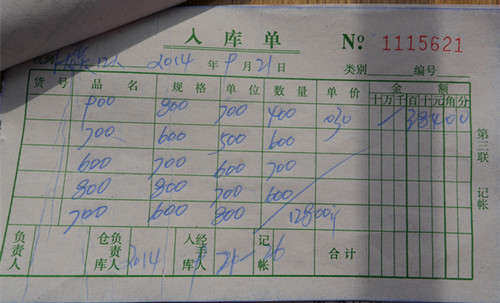 入库单 № 1115621
2014年9月21日 类别 编号
货号 品名 规格 单位 数量 单价 金额
十万千百十元角分
900 800 700 400 030 38400
700 600 500 600
600 700 600 700
800 800 700 600
700 600 800 12800
负责人 仓库负责人 2014 入库经手人 21-26 记帐 合计
第三联 记帐